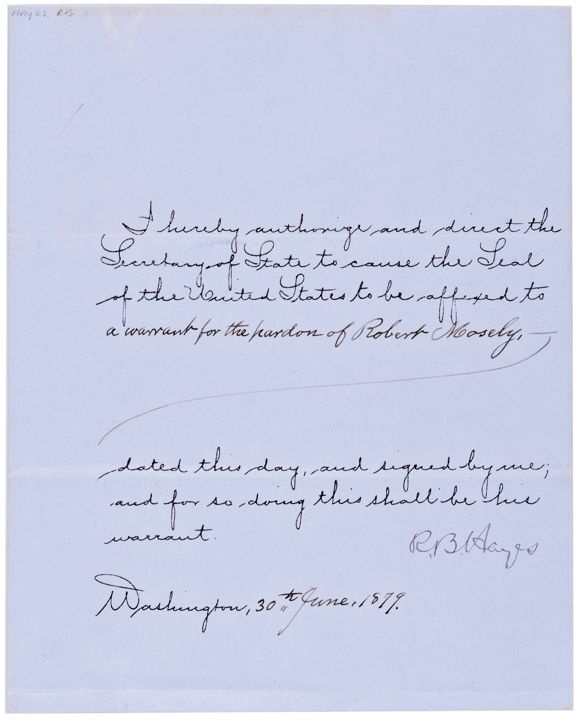 Hayes, R.B.
I hereby authorize and direct the
Secretary of State to cause the Seal
of the United States to be affixed to
a warrant for the pardon of Robert Mosely,—
dated this day, and signed by me;
and for so doing this shall be his
warrant.
R. B. Hayes
Washington, 30th June, 1879.